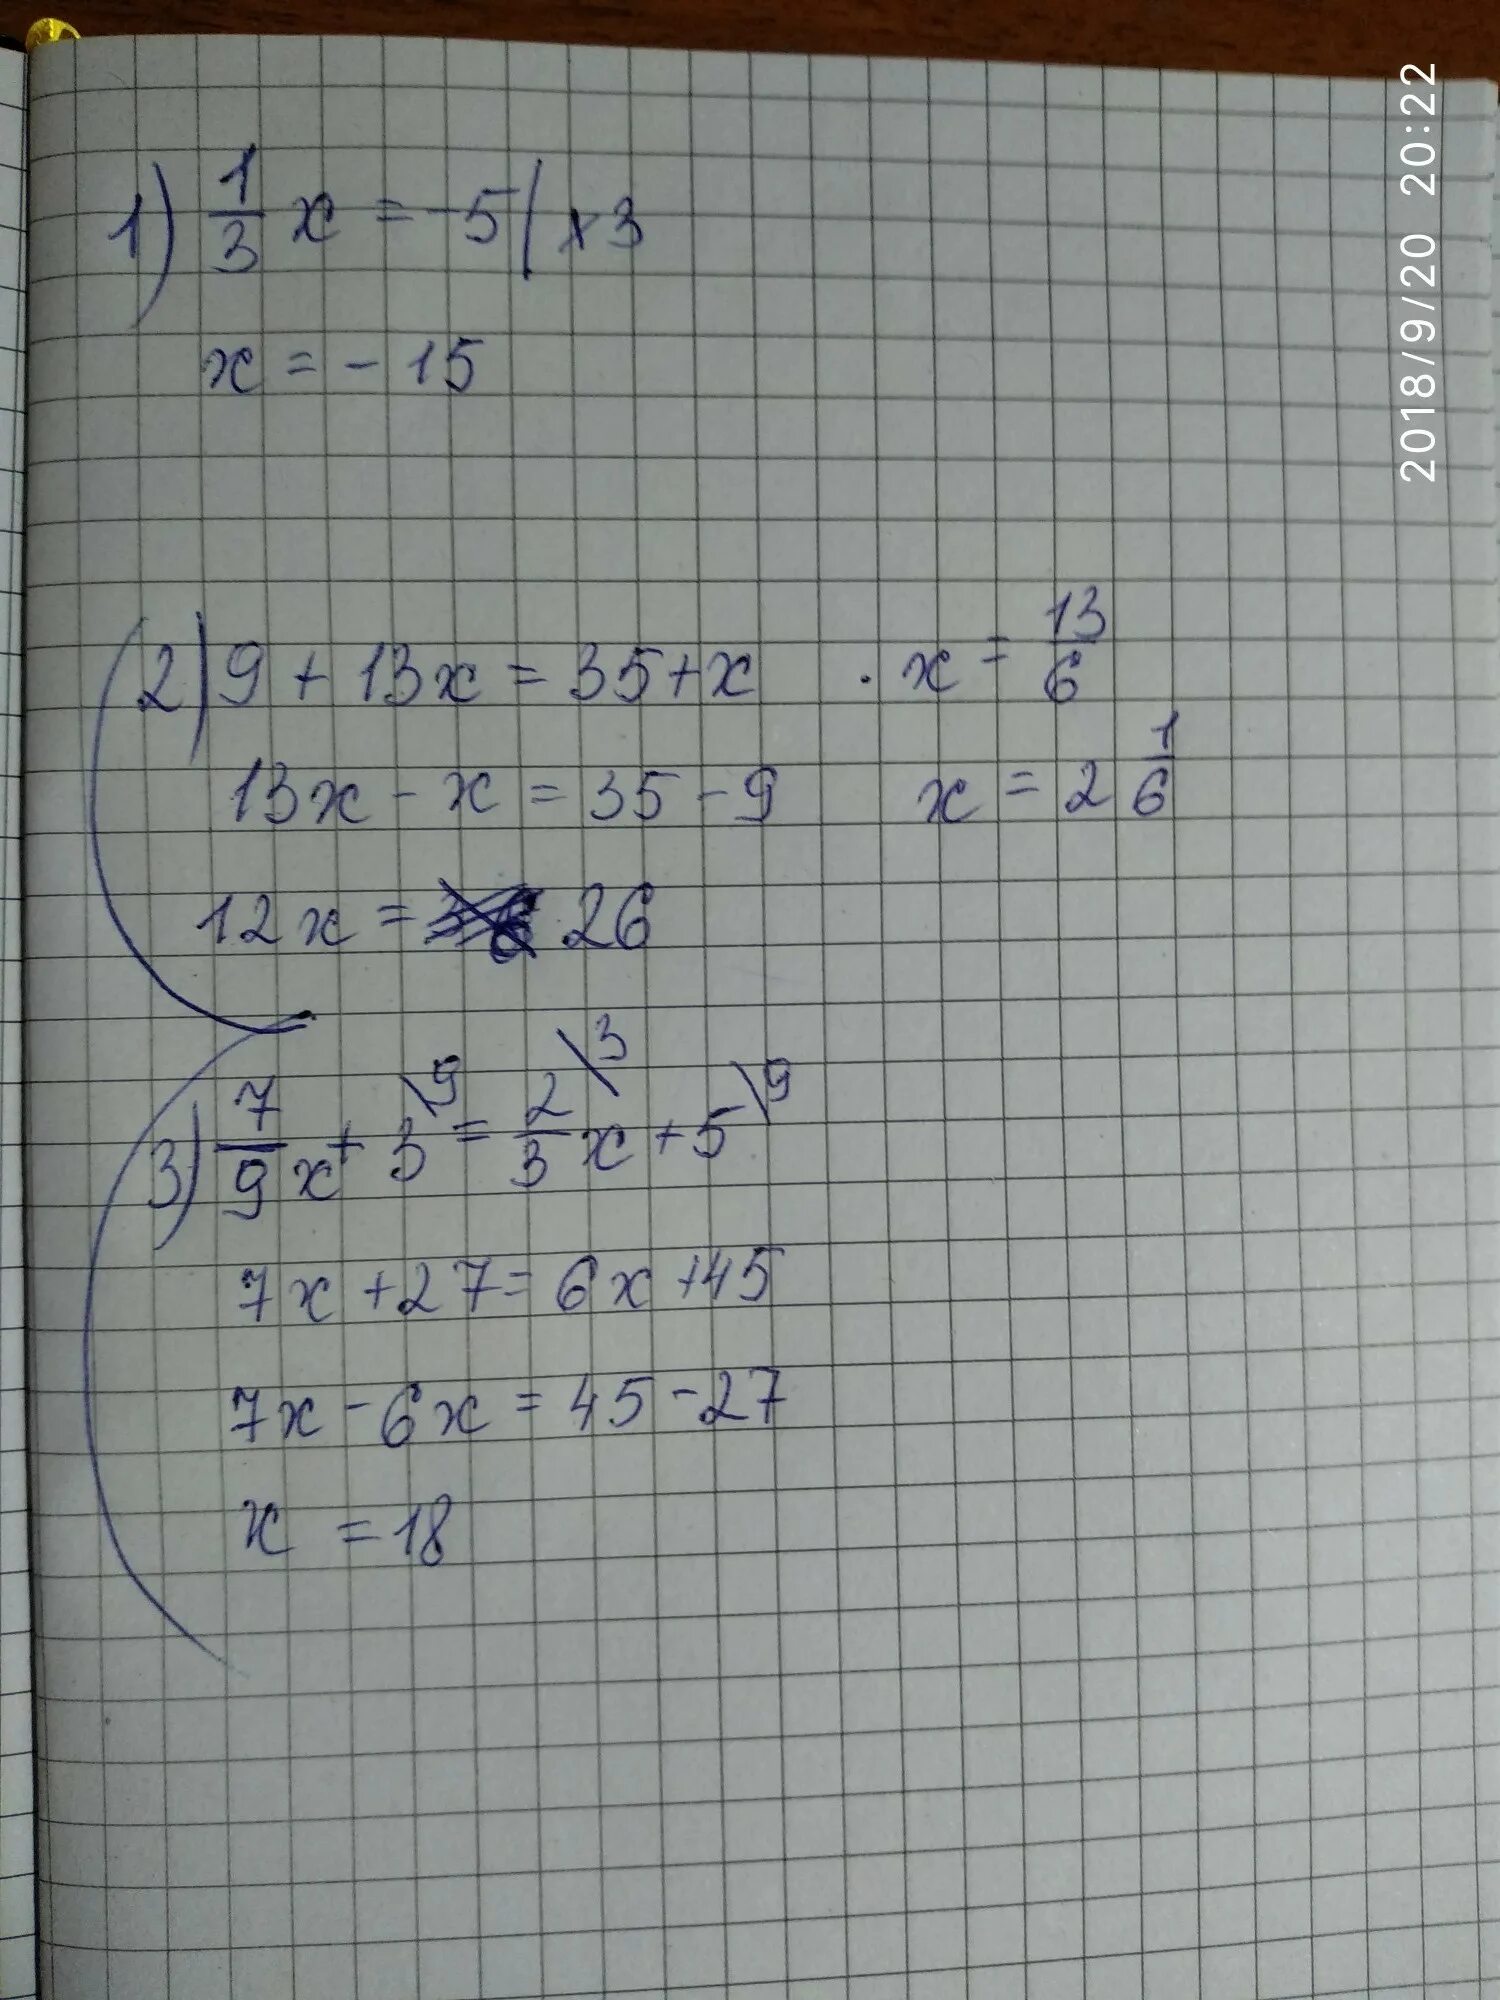 1) 1/3 x = -5 | ×3
x = - 15
2) 9 + 13x = 35 + x
13x - x = 35 - 9
12x = 26
. x = 13/6
x = 2 1/6
3) 7/9 x + 3 \9 = 2/3 \3 x + 5 \9
7x + 27 = 6x + 45
7x - 6x = 45 - 27
x = 18
2018/9/20 20:22